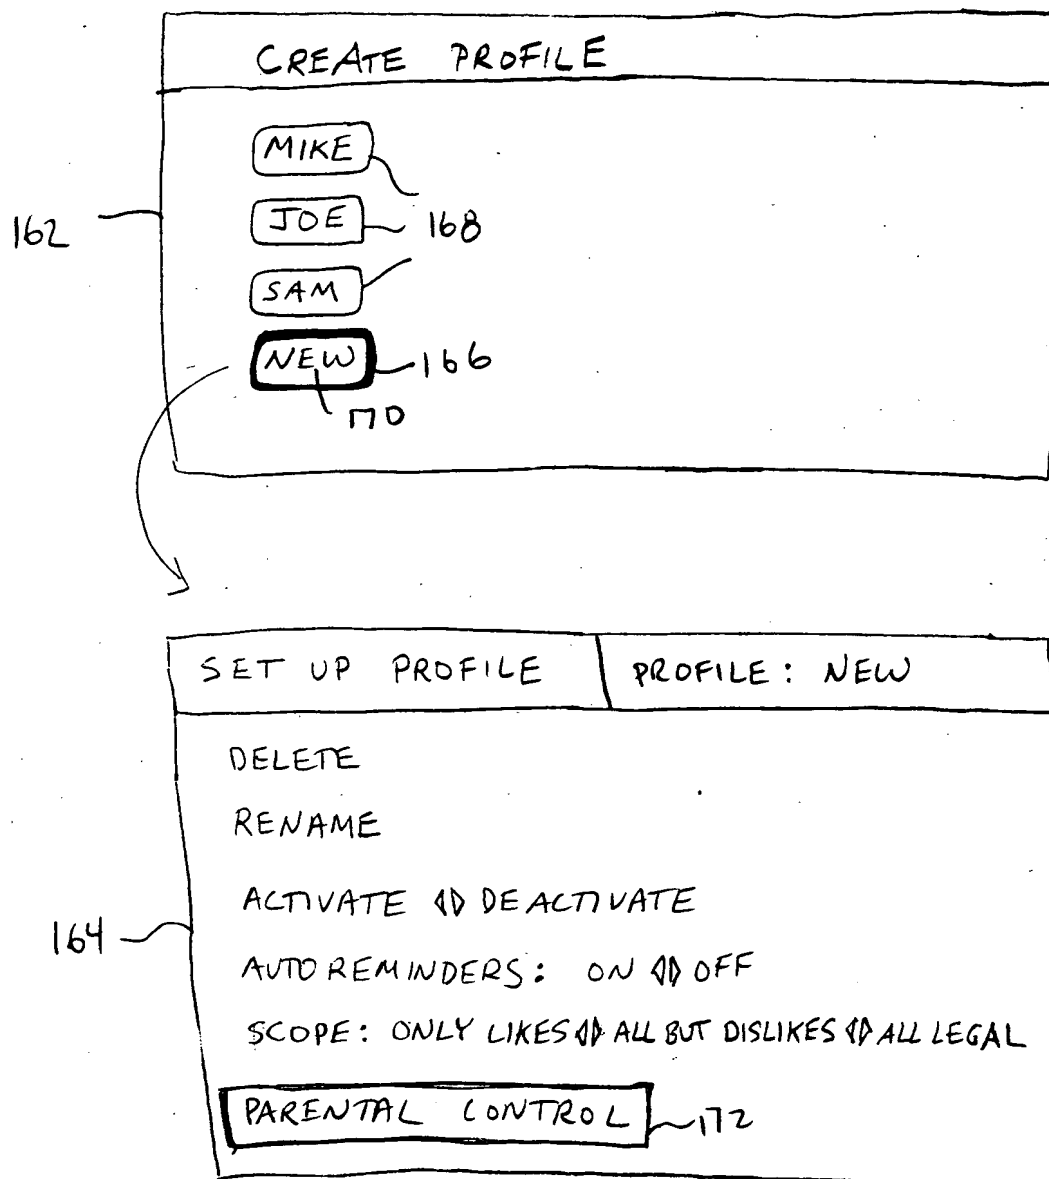 CREATE PROFILE
MIKE
162
JOE
168
SAM
NEW
166
170
SET UP PROFILE
PROFILE: NEW
DELETE
RENAME
ACTIVATE ◁▷ DEACTIVATE
164
AUTO REMINDERS: ON ◁▷ OFF
SCOPE: ONLY LIKES ◁▷ ALL BUT DISLIKES ◁▷ ALL LEGAL
PARENTAL CONTROL
172